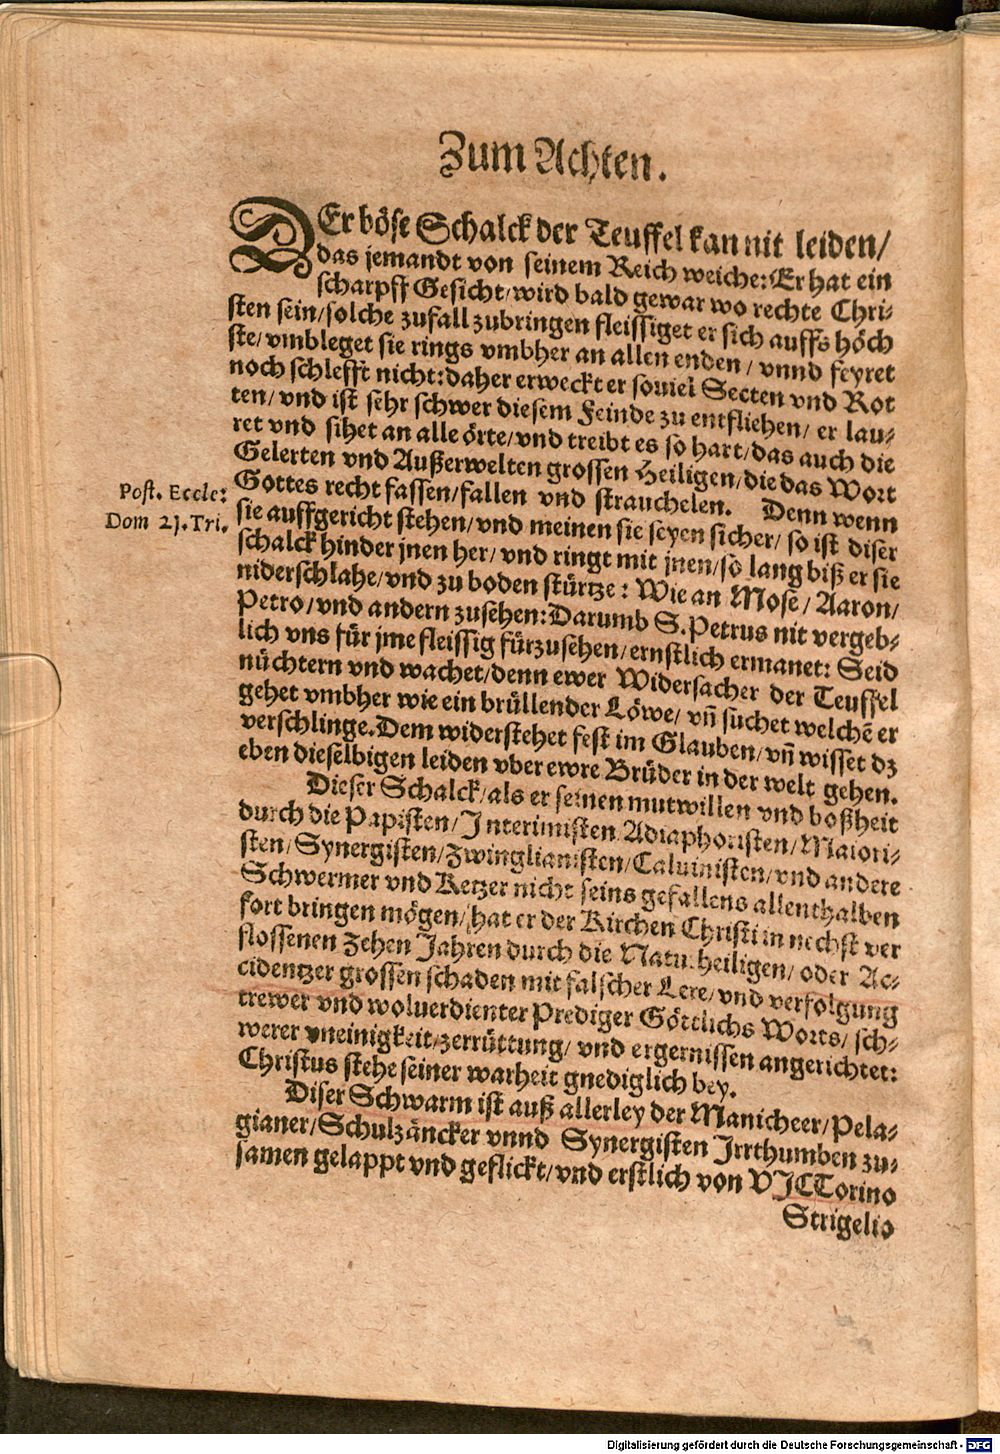 Zum Achten.
DEr böse Schalck der Teuffel kan nit leiden/
das jemandt von seinem Reich weiche: Er hat ein
scharpff Gesicht/ wird bald gewar wo rechte Chri-
sten sein/ solche zufall zubringen fleissiget er sich auffs höch
ste/ vmbleget sie rings vmbher an allen enden/ vnnd feyret
noch schlefft nicht: daher erweckt er souiel Secten vnd Rot
ten/ vnd ist sehr schwer diesem Feinde zu entfliehen/ er lau-
ret vnd sihet an alle örte/ vnd treibt es so hart/ das auch die
Gelerten vnd Außerwelten grossen Heiligen/ die das Wort
Gottes recht fassen/ fallen vnd strauchelen. Denn wenn
Post. Eccle:
Dom 21. Tri.
sie auffgericht stehen/ vnd meinen sie seyen sicher/ so ist diser
schalck hinder jnen her/ vnd ringt mit jnen/ so lang biß er sie
niderschlahe/ vnd zu boden stürtze: Wie an Mose/ Aaron/
Petro/ vnd andern zusehen: Darumb S. Petrus nit vergeb-
lich vns für jme fleissig fürzusehen/ ernstlich ermanet: Seid
nüchtern vnd wachet/ denn ewer Widersacher der Teuffel
gehet vmbher wie ein brüllender Löwe/ vñ suchet welchē er
verschlinge. Dem widerstehet fest im Glauben/ vñ wisset dz
eben dieselbigen leiden vber ewre Brüder in der welt gehen.
Dieser Schalck/ als er seinen mutwillen vnd boßheit
durch die Papisten/ Interimisten/ Adiaphoristen/ Maiori-
sten/ Synergisten/ Zwinglianisten/ Caluinisten/ vnd andere
Schwermer vnd Ketzer nicht seins gefallens allenthalben
fort bringen mögen/ hat er der Kirchen Christi in nechst ver
flossenen Zehen Jahren durch die Naturheiligen/ oder Ac-
cidentzer grossen schaden mit falscher Lere/ vnd verfolgung
trewer vnd woluerdienter Prediger Göttlichs Worts/ sch-
werer vneinigkeit/ zerrüttung/ vnd ergernissen angerichtet:
Christus stehe seiner warheit gnediglich bey.
Diser Schwarm ist auß allerley der Manicheer/ Pela-
gianer/ Schulzäncker vnnd Synergisten Irrthumben zu-
samen gelappt vnd geflickt/ vnd erstlich von VICTorino
Strigelio
Digitalisierung gefördert durch die Deutsche Forschungsgemeinschaft - DFG